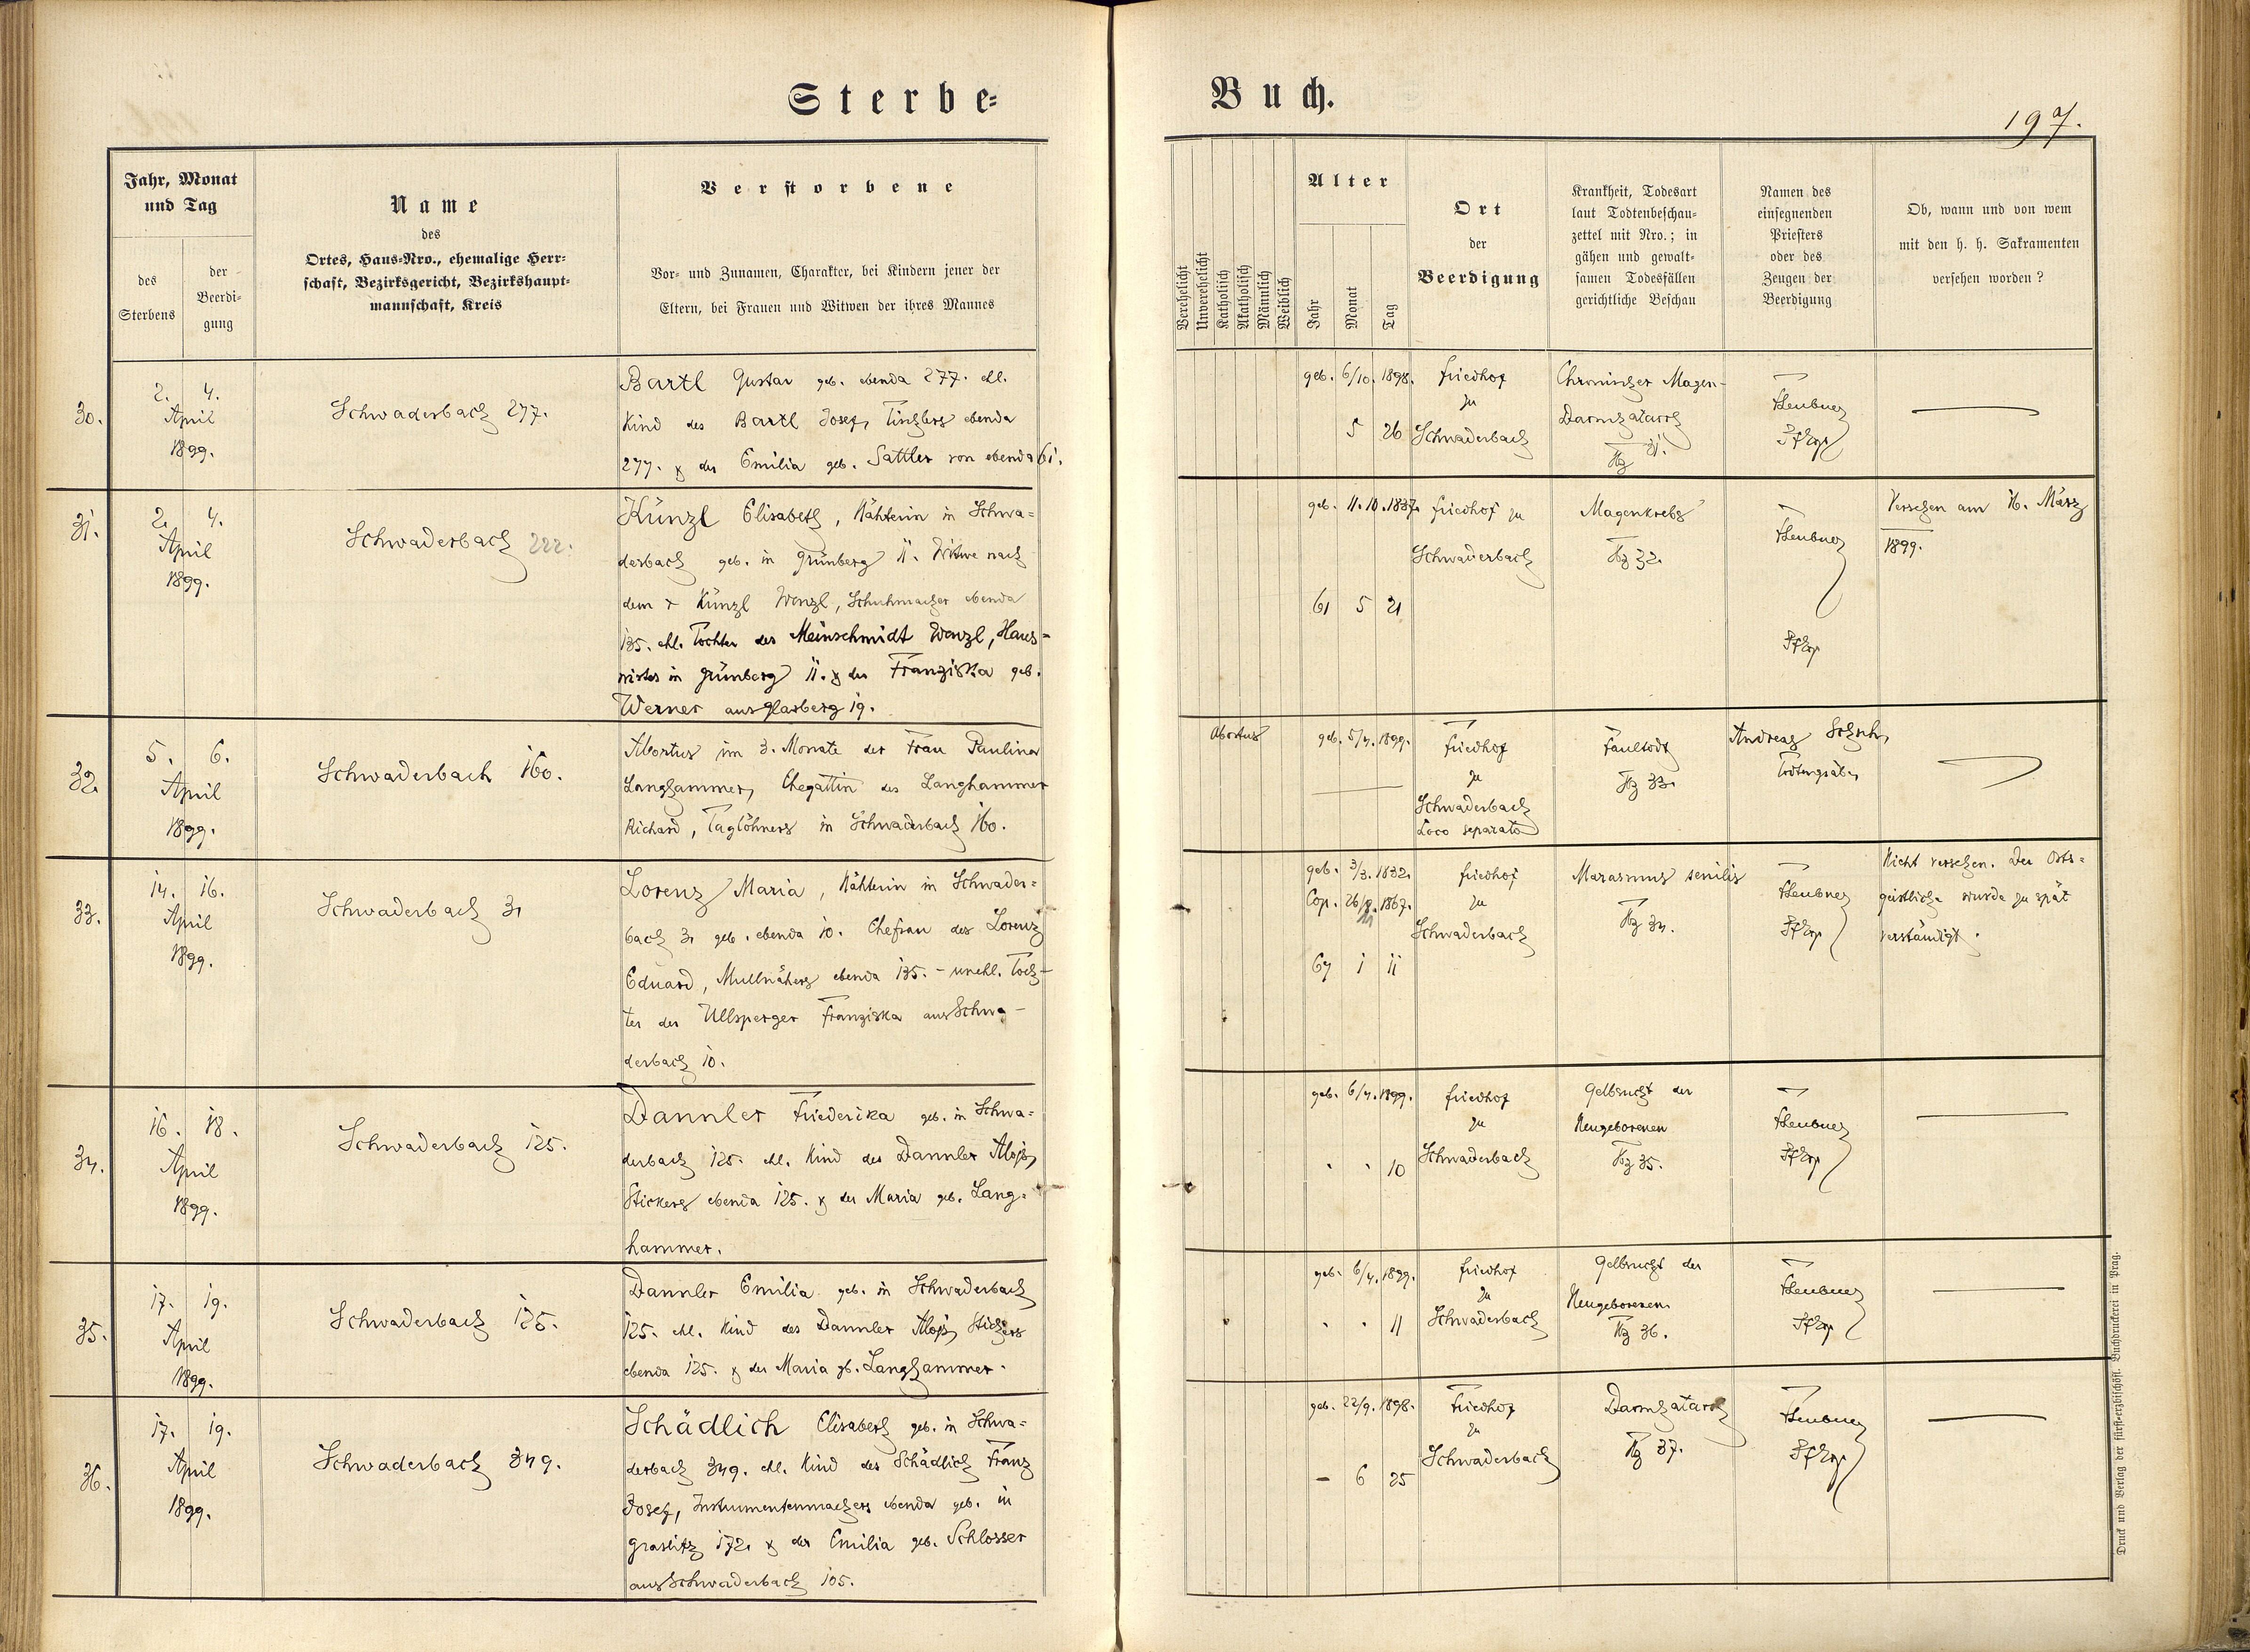 Sterbe-
Buch.
197.
Jahr, Monat
und Tag
des
Sterbens
der
Beerdi-
gung
Name
des
Ortes, Haus-Nro., ehemalige Herr-
schaft, Bezirksgericht, Bezirkshaupt-
mannschaft, Kreis
Verstorbene
Vor- und Zunamen, Charakter, bei Kindern jener der
Eltern, bei Frauen und Witwen der ihres Mannes
Verehelicht
Unverehelicht
Katholisch
Akatholisch
Männlich
Weiblich
Alter
Jahr
Monat
Tag
Ort
der
Beerdigung
Krankheit, Todesart
laut Todtenbeschau-
zettel mit Nro.; in
gähen und gewalt-
samen Todesfällen
gerichtliche Beschau
Namen des
einsegnenden
Priesters
oder des
Zeugen der
Beerdigung
Ob, wann und von wem
mit den h. h. Sakramenten
versehen worden?
30.
2. 4.
April
1899.
Schwaderbach 277.
Bartl Gustav geb. ebenda 277. ehl.
Kind des Bartl Josef, Tischlers ebenda
277. & der Emilia geb. Sattler von ebenda 61.
geb. 6/10. 1898.
5 26
Friedhof
zu
Schwaderbach
Chronischer Magen-
Darmkatarrh
31.
Heubner
31.
2. 4.
April
1899.
Schwaderbach 222.
Künzl Elisabeth, Nähterin in Schwa-
derbach geb. in Grünberg 11. Witwe nach
dem + Künzl Wenzl, Schuhmacher ebenda
135. ehl. Tochter des Meinschmidt Wenzl, Haus-
wirtes in Grünberg 11. & der Franziska geb.
Werner aus Glasberg 19.
geb. 11. 10. 1837.
61 5 21
Friedhof zu
Schwaderbach
Magenkrebs
32.
Heubner
Versehen am 16. März
1899.
32.
5. 6.
April
1899.
Schwaderbach 160.
Abortus im 3. Monate der Frau Paulina
Langhammer, Ehegattin des Langhammer
Richard, Taglöhners in Schwaderbach 160.
Abortus
geb. 5/4. 1899.
Friedhof
zu
Schwaderbach
Loco separato
Faultodt
33.
Andreas
Todtengräber
33.
14. 16.
April
1899.
Schwaderbach 31
Lorenz Maria, Nähterin in Schwader-
bach 31 geb. ebenda 10. Ehefrau des Lorenz
Eduard, Mullnähers ebenda 135. - unehl. Toch-
ter der Ullsperger Franziska aus Schwa-
derbach 10.
geb. 3/3. 1832.
Cop. 1867.
67 1 11
Friedhof
zu
Schwaderbach
Marasmus senilis
34.
Heubner
Nicht versehen. Der Orts-
geistliche wurde zu spät
verständigt.
34.
16. 18.
April
1899.
Schwaderbach 125.
Dannler Friederika geb. in Schwa-
derbach 125. ehl. Kind des Dannler Alois,
Stickers ebenda 125. & der Maria geb. Lang-
hammer.
geb. 6/4. 1899.
10
Friedhof
zu
Schwaderbach
Gelbsucht der
Neugeborenen
35.
Heubner
35.
17. 19.
April
1899.
Schwaderbach 125.
Dannler Emilia geb. in Schwaderbach
125. ehl. Kind des Dannler Alois, Stickers
ebenda 125. & der Maria gb. Langhammer.
geb. 6/4. 1899.
11
Friedhof
zu
Schwaderbach
Gelbsucht der
Neugeborenen
36.
Heubner
36.
17. 19.
April
1899.
Schwaderbach 349.
Schädlich Elisabeth geb. in Schwa-
derbach 349. ehl. Kind des Schädlich Franz
Josef, Instrumentenmachers ebenda geb. in
Graslitz 172. & der Emilia geb. Schlosser
aus Schwaderbach 105.
geb. 22/9. 1898.
- 6 25
Friedhof
zu
Schwaderbach
Darmkatarrh
37.
Heubner
Druck und Verlag der fürst-erzbischöfl. Buchdruckerei in Prag.